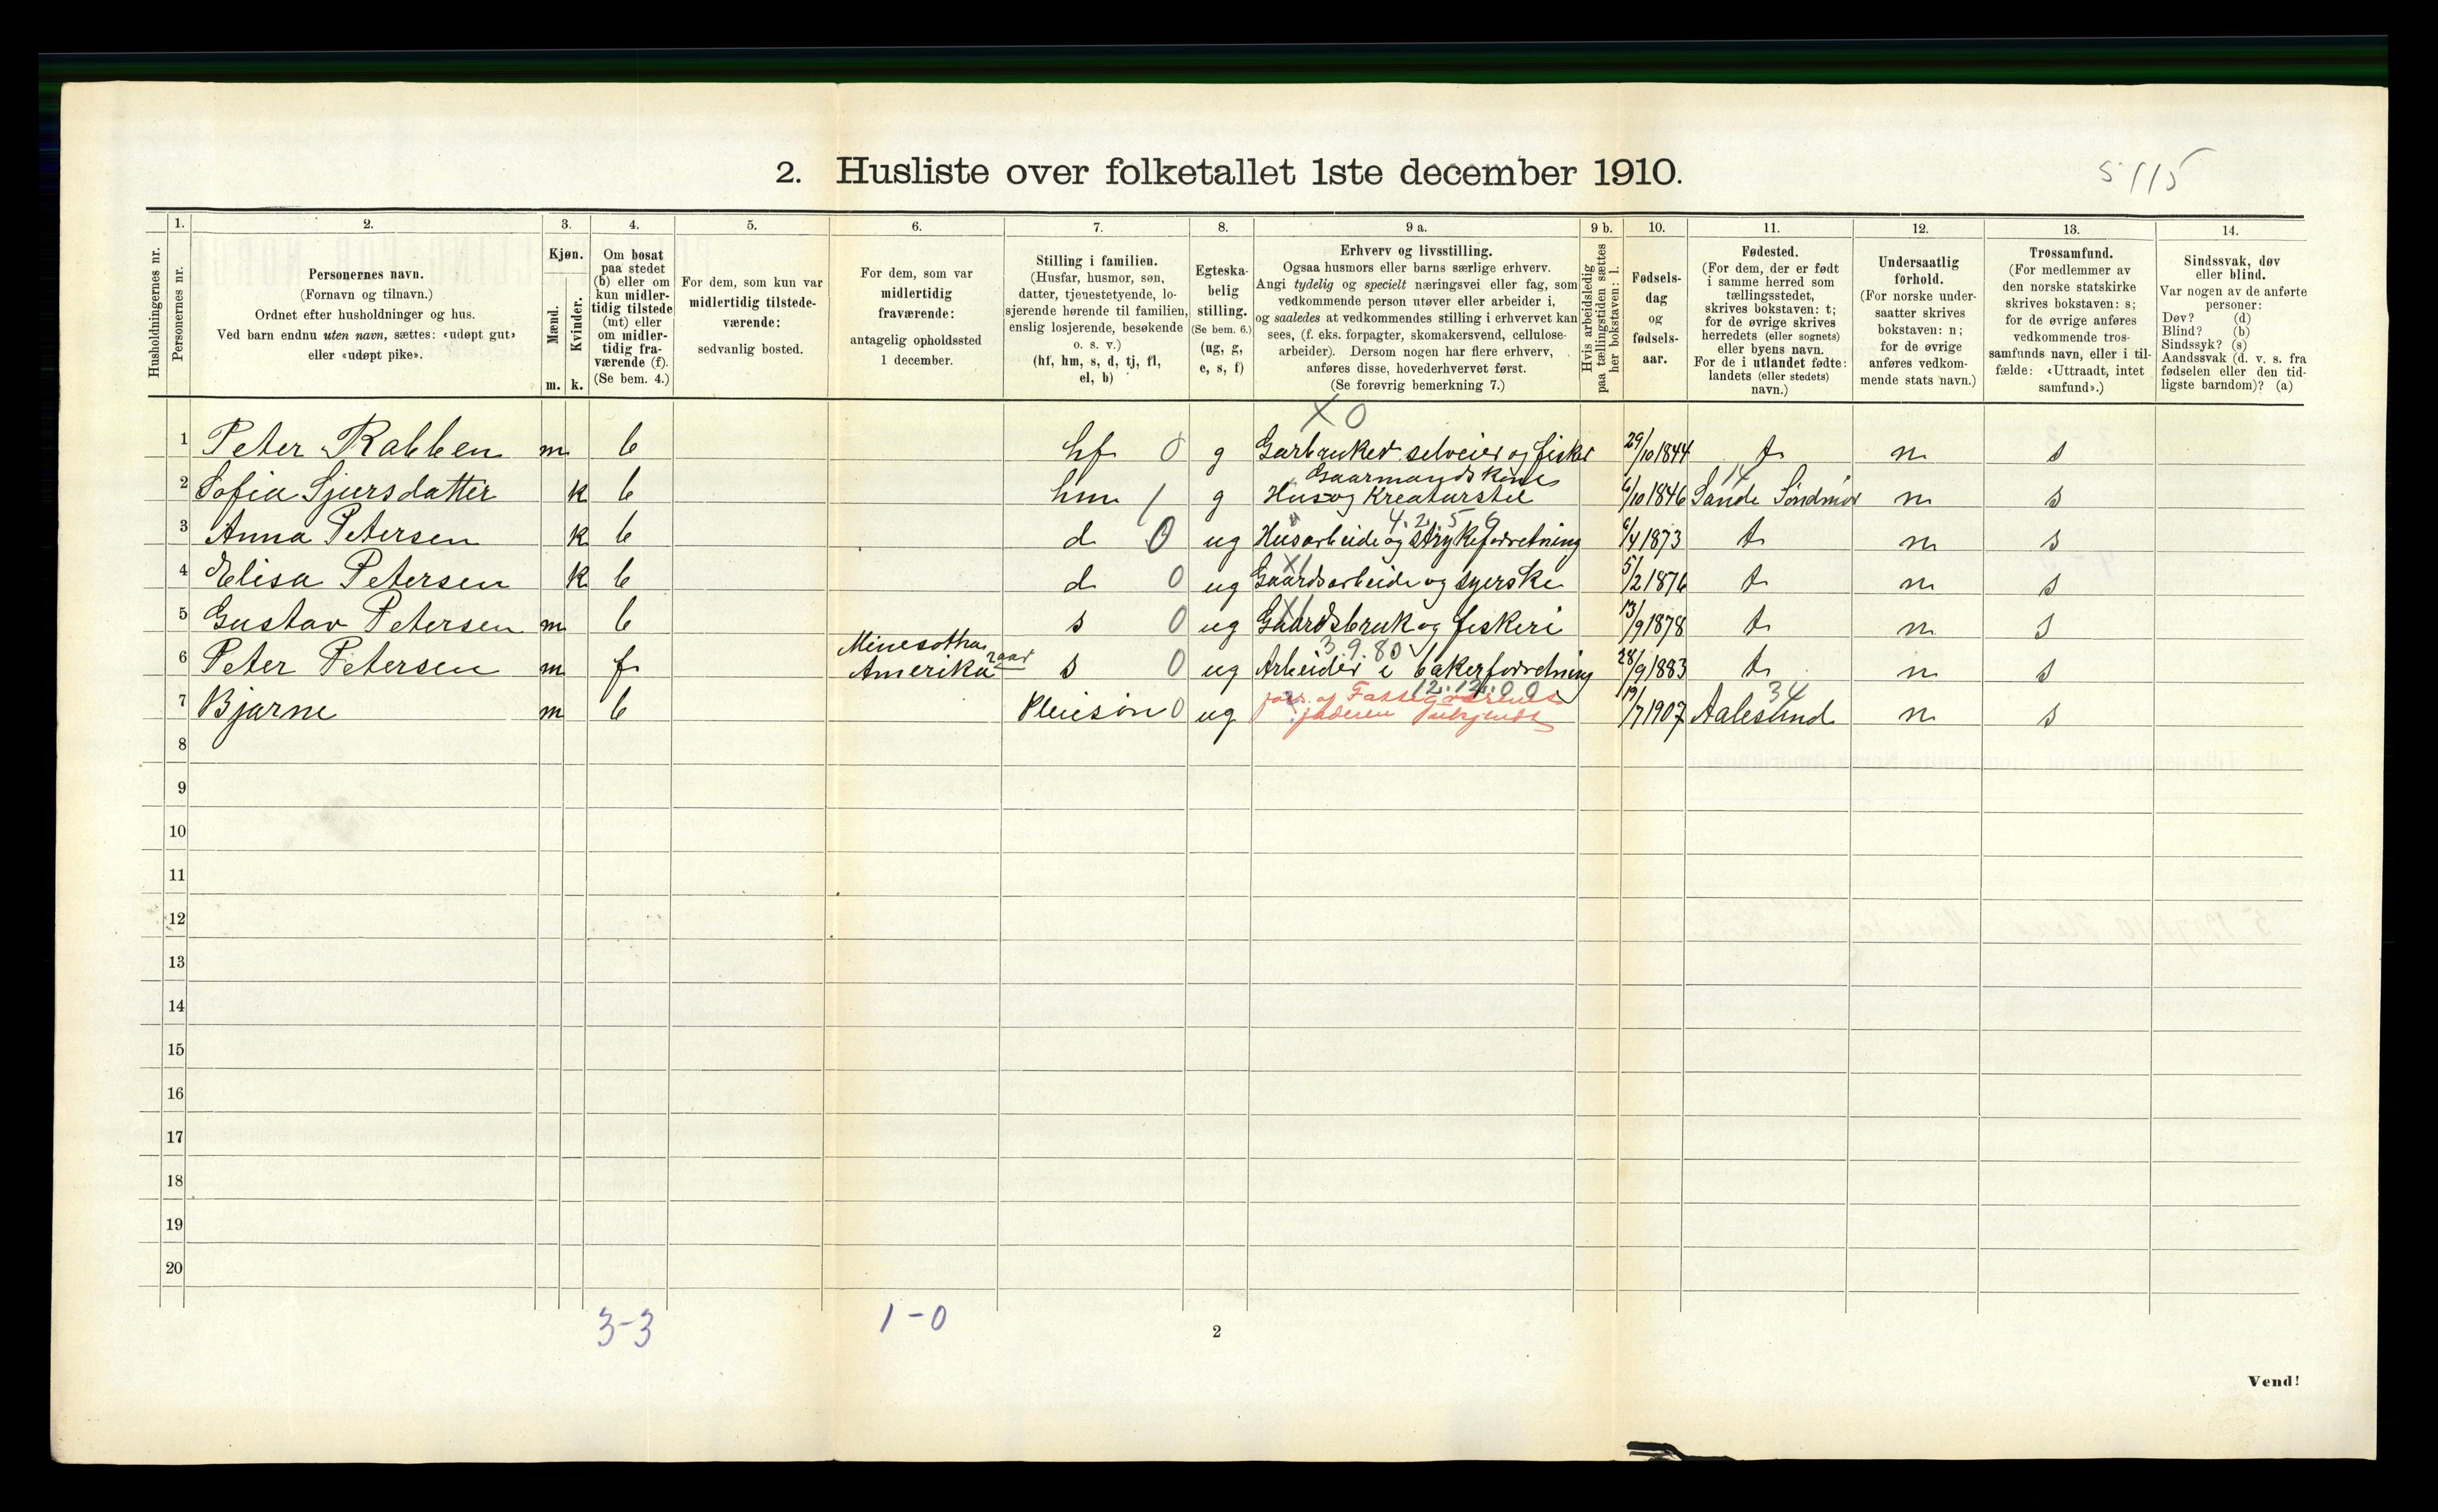 2. Husliste over folketallet 1ste december 1910.
5115
Husholdningernes nr.
1. Personernes nr.
2. Personernes navn. (Fornavn og tilnavn.) Ordnet efter husholdninger og hus. Ved barn endnu uten navn, sættes: «udøpt gut» eller «udøpt pike».
3. Kjøn. Mænd. Kvinder. m. k.
4. Om bosat paa stedet (b) eller om kun midlertidig tilstede (mt) eller om midlertidig fraværende (f). (Se bem. 4.)
5. For dem, som kun var midlertidig tilstedeværende: sedvanlig bosted.
6. For dem, som var midlertidig fraværende: antagelig opholdssted 1 december.
7. Stilling i familien. (Husfar, husmor, søn, datter, tjenestetyende, losjerende hørende til familien, enslig losjerende, besøkende o. s. v.) (hf, hm, s, d, tj, fl, el, b)
8. Egteskabelig stilling. (Se bem. 6.) (ug, g, e, s, f)
9 a. Erhverv og livsstilling. Ogsaa husmors eller barns særlige erhverv. Angi tydelig og specielt næringsvei eller fag, som vedkommende person utøver eller arbeider i, og saaledes at vedkommendes stilling i erhvervet kan sees, (f. eks. forpagter, skomakersvend, cellulosearbeider). Dersom nogen har flere erhverv, anføres disse, hovederhvervet først. (Se forøvrig bemerkning 7.)
9 b. Hvis arbeidsledig paa tællingstiden sættes her bokstaven: l.
10. Fødselsdag og fødselsaar.
11. Fødested. (For dem, der er født i samme herred som tællingsstedet, skrives bokstaven: t; for de øvrige skrives herredets (eller sognets) eller byens navn. For de i utlandet fødte: landets (eller stedets) navn.)
12. Undersaatlig forhold. (For norske undersaatter skrives bokstaven: n; for de øvrige anføres vedkommende stats navn.)
13. Trossamfund. (For medlemmer av den norske statskirke skrives bokstaven: s; for de øvrige anføres vedkommende trossamfunds navn, eller i tilfælde: «Uttraadt, intet samfund».)
14. Sindssvak, døv eller blind. Var nogen av de anførte personer: Døv? (d) Blind? (b) Sindssyk? (s) Aandssvak (d. v. s. fra fødselen eller den tidligste barndom)? (a)
X 0
1 Peter Rabben m b hf 0 g Garbruker selveier og fisker 29/10 1844 t n s
Gaarmands kone 14
2 Sofia Sjursdatter k b hm 1 g Hus og Kreaturstel 6/10 1846 Sande Søndmør n s
4.2.5 6
3 Anna Petersen k b d 0 ug Husarbeide og Strykeforretning 6/4 1873 t n s
X1
4 Elisa Petersen k b d 0 ug Gaardsarbeide og syerske 5/2 1876 t n s
X1
5 Gustav Petersen m b s 0 ug Gaardsbruk og fiskeri 13/9 1878 t n s
Minesotha 3.9.80
6 Peter Petersen m f Amerika 2 aar s 0 ug Arbeider i bakerforretning 28/9 1883 t n s
12.12.0 0 34
7 Bjarne m b Pleiesøn 0 ug 19/7 1907 Aalesund n s
8
9
10
11
12
13
14
15
16
17
18
19
20
3-3
1-0
2
Vend!